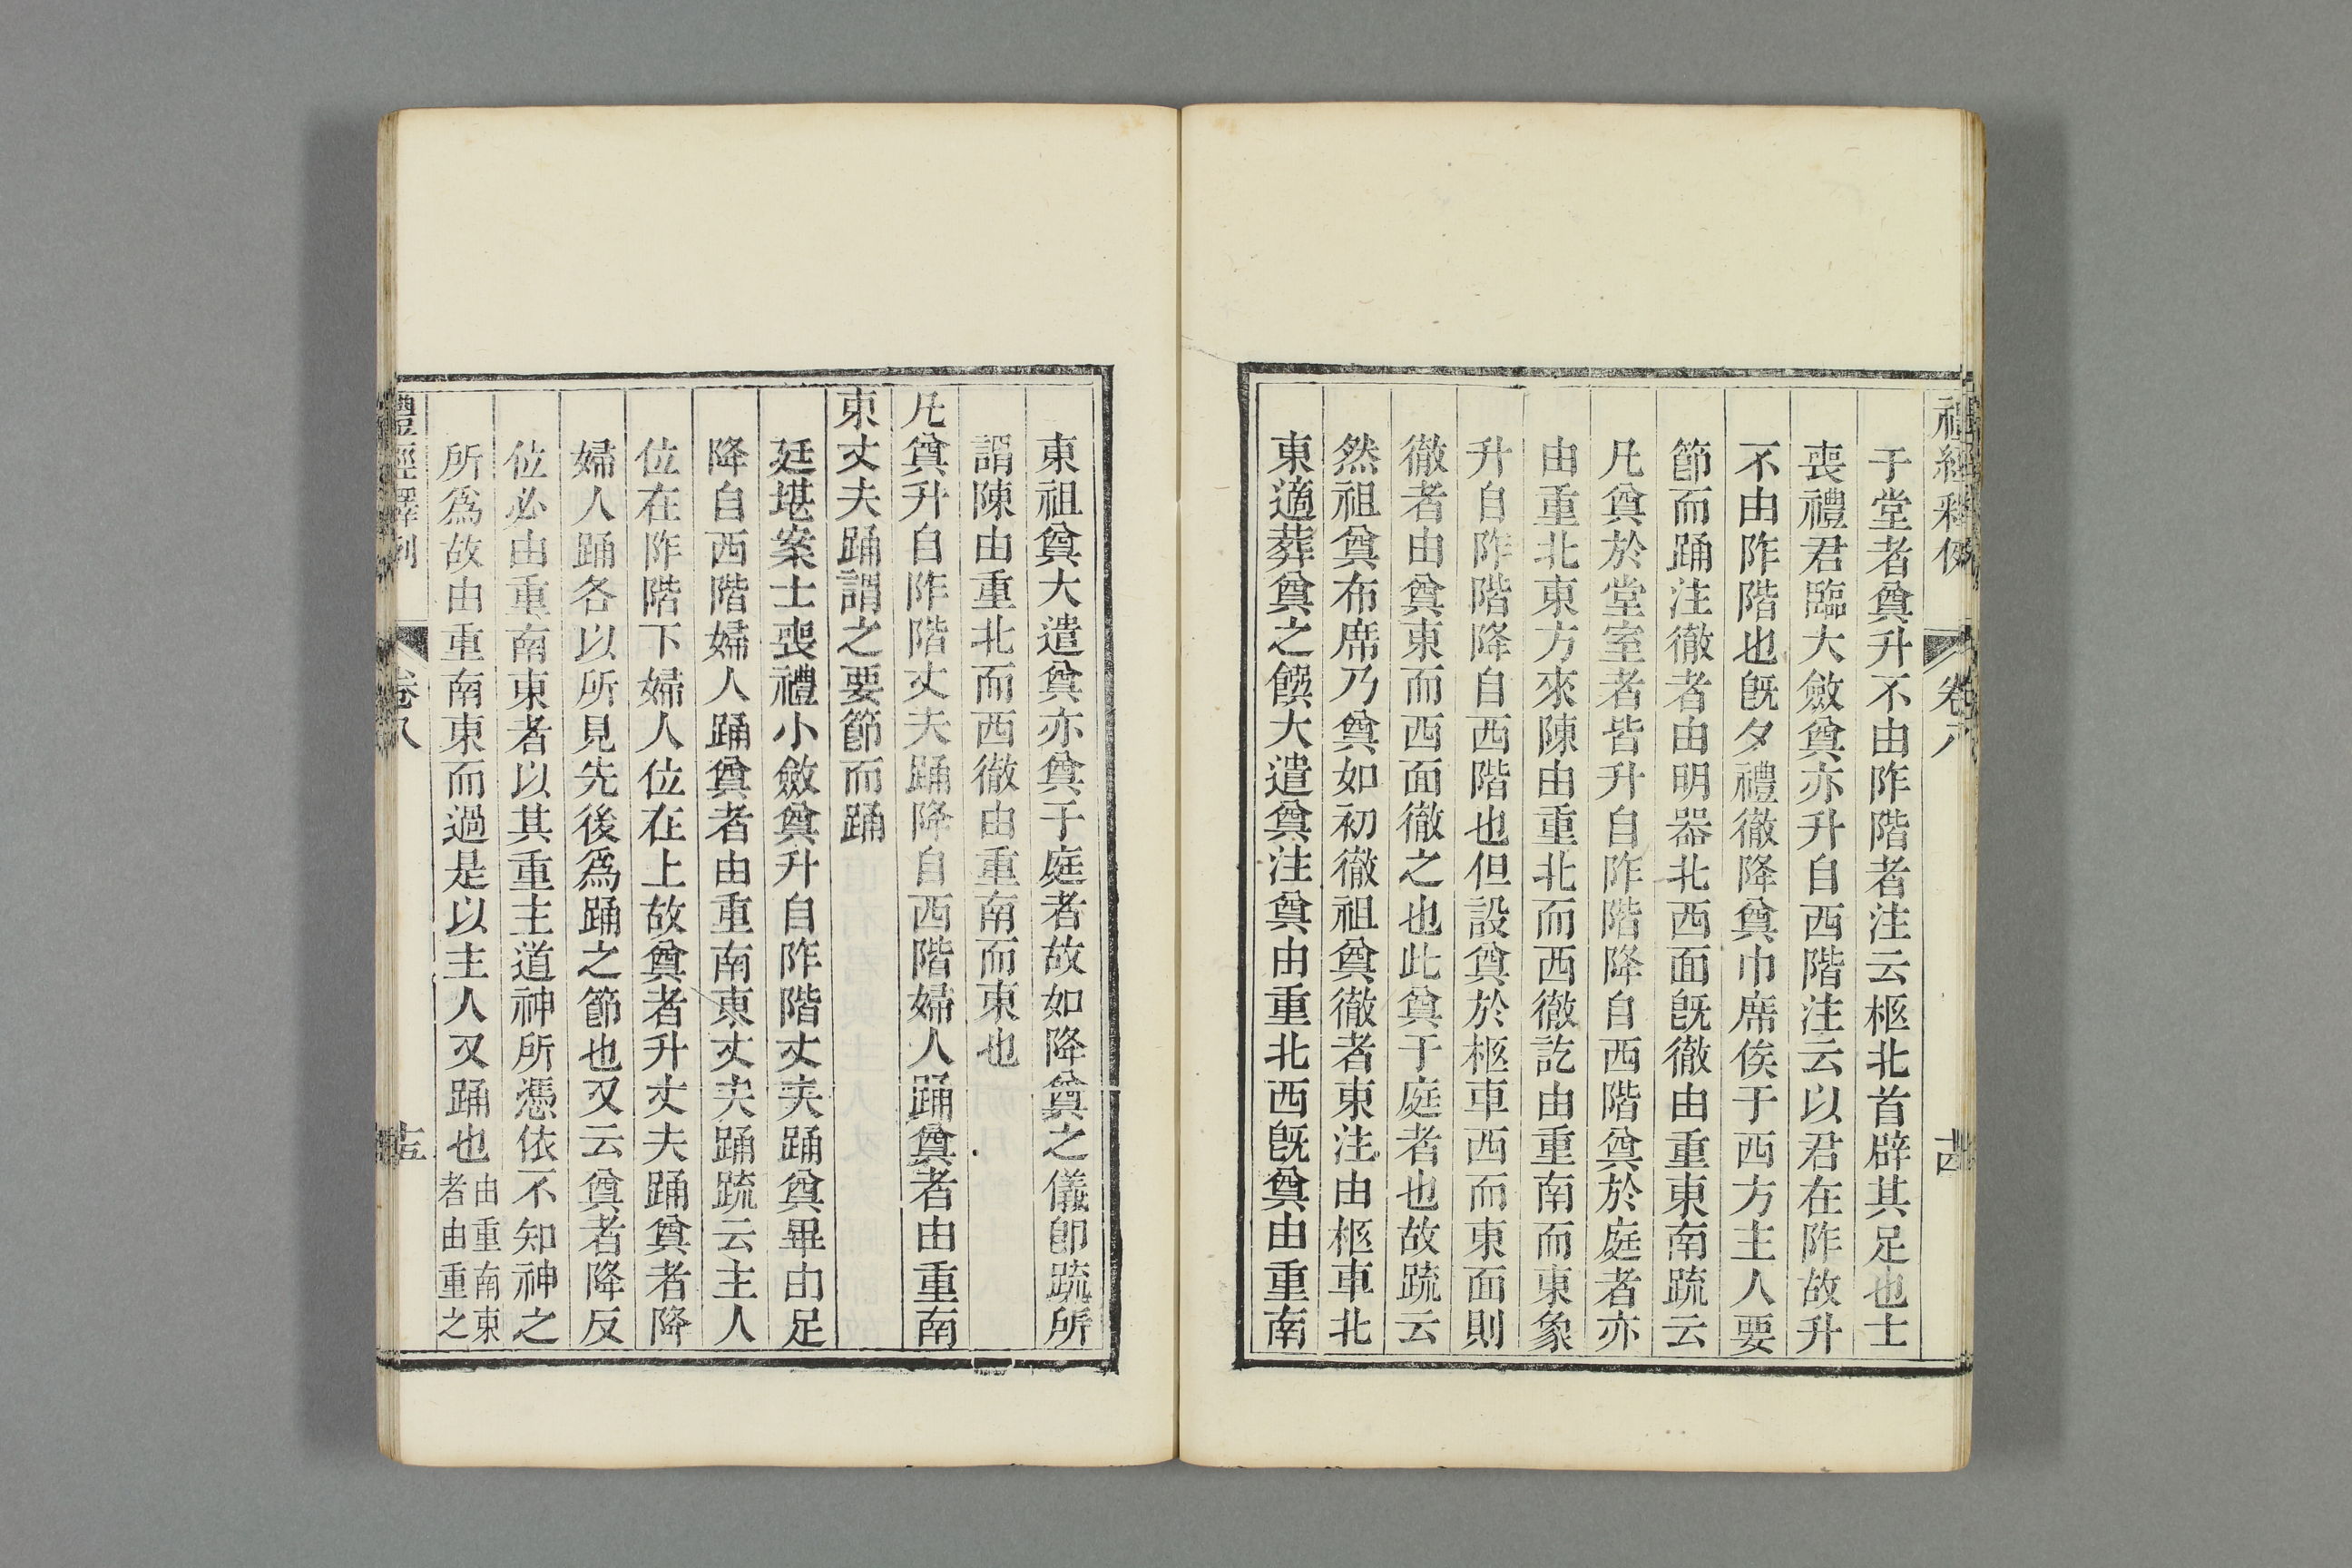 禮經釋例
卷八
十四
于堂者奠升不由阼階者注云柩北首辟其足也士
喪禮君臨大斂奠亦升自西階注云以君在阼故升
不由阼階也旣夕禮徹降奠巾席俟于西方主人要
節而踊注徹者由明器北西面旣徹由重東南疏云
凡奠於堂室者皆升自阼階降自西階奠於庭者亦
由重北東方來陳由重北而西徹訖由重南而東象
升自阼階降自西階也但設奠於柩車西而東面則
徹者由奠東而西面徹之也此奠于庭者也故疏云
然祖奠布席乃奠如初徹祖奠徹者東注由柩車北
東適葬奠之饌大遣奠注奠由重北西旣奠由重南
東祖奠大遣奠亦奠于庭者故如降奠之儀卽疏所
謂陳由重北而西徹由重南而東也
凡奠升自阼階丈夫踊降自西階婦人踊奠者由重南
東丈夫踊謂之要節而踊
廷堪案士喪禮小斂奠升自阼階丈夫踊奠畢由足
降自西階婦人踊奠者由重南東丈夫踊疏云主人
位在阼階下婦人位在上故奠者升丈夫踊奠者降
婦人踊各以所見先後爲踊之節也又云奠者降反
位必由重南東者以其重主道神所憑依不知神之
所爲故由重南東而過是以主人又踊也由重南東
者由重之
禮經釋例
卷八
十五